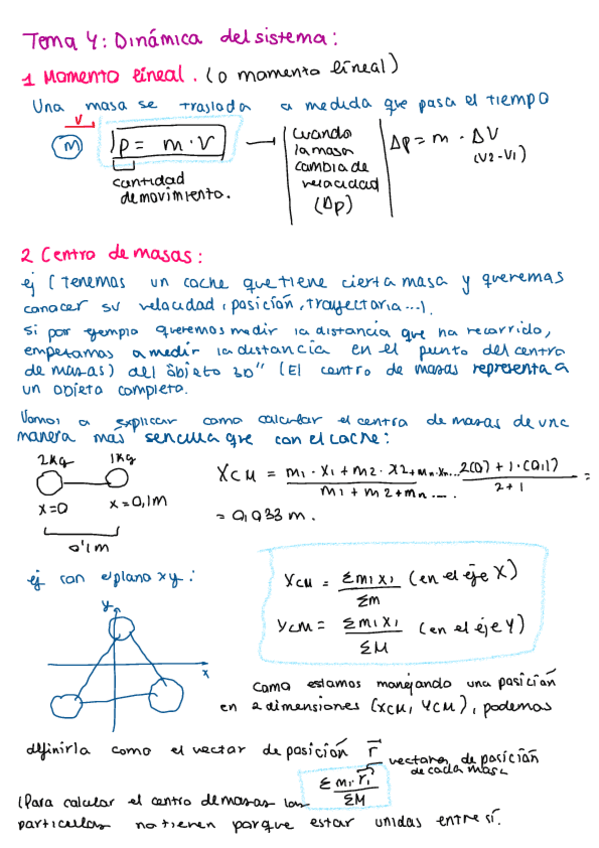 Tema 4: Dinámica del sistema:
1 Momento lineal. (o momento lineal)
Una masa se traslada a medida que pasa el tiempo
v
m p = m · v → cuando la masa cambia de velocidad (Δp) Δp = m · Δv (v2-v1)
cantidad de movimiento.
2 Centro de masas:
ej (Tenemos un coche que tiene cierta masa y queremos
conocer su velocidad, posición, trayectoria...).
Si por ejemplo queremos medir la distancia que ha recorrido,
empezamos a medir la distancia en el punto del centro
de masas) del objeto 3D" (El centro de masas representa a
un objeto completo.
Vamos a explicar como calcular el centro de masas de una
manera más sencilla que con el coche:
2Kg 1Kg
x=0 x=0,1m
0,1m
XCM = m1 · x1 + m2 · x2 + mn · xn... / m1 + m2 + mn .... 2(0) + 1 · (0,1) / 2+1 =
= 0,033 m.
ej con el plano xy:
y
x
XCM = Σm1 x1 / Σm (en el eje X)
YCM = Σm1 x1 / ΣM (en el eje Y)
Como estamos manejando una posición
en 2 dimensiones (XCM, YCM), podemos
definirla como el vector de posición r⃗
Σ m1 · r⃗1 / ΣM vectores de posición de cada masa
(Para calcular el centro de masas las
particulas no tienen porque estar unidas entre sí.